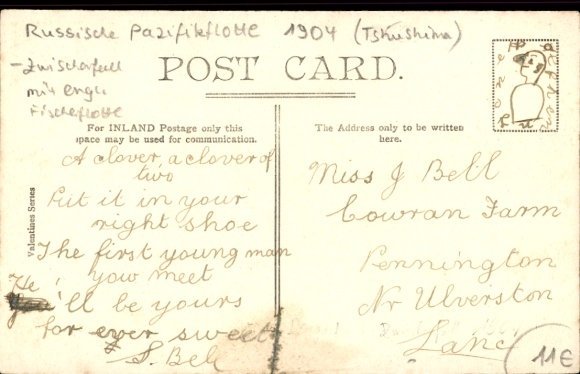 Russische Pazifikflotte 1904 (Tsushima)
- Zwischenfall
mit engl.
Fischeflotte
POST CARD.
For INLAND Postage only this
space may be used for communication.
The Address only to be written
here.
Valentines Series
A clover, a clover of
two
Put it in your
right shoe
The first young man
you meet
He 'll be yours
for ever sweet
S. Bell
Miss J Bell
Cowran Farm
Pennington
Nr Ulverston
Lanc
11€